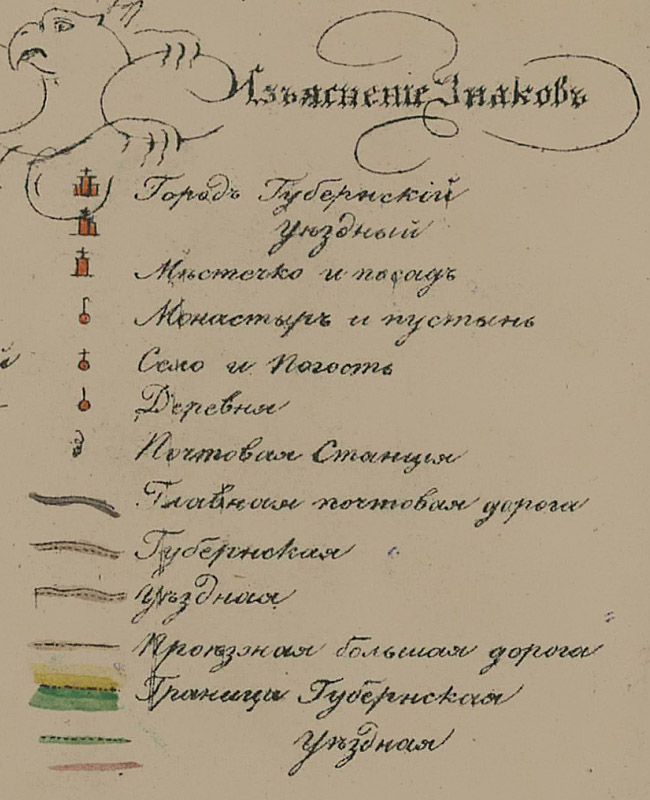 Изъясненіе Знаковъ
Городъ Губернскій
Уѣздный
Мѣстечко и посадъ
Монастырь и пустынь
Село и Погостъ
Деревня
Почтовая Станція
Главная почтовая дорога
Губернская
Уѣздная
Проѣзжая большая дорога
Граница Губернская
Уѣздная